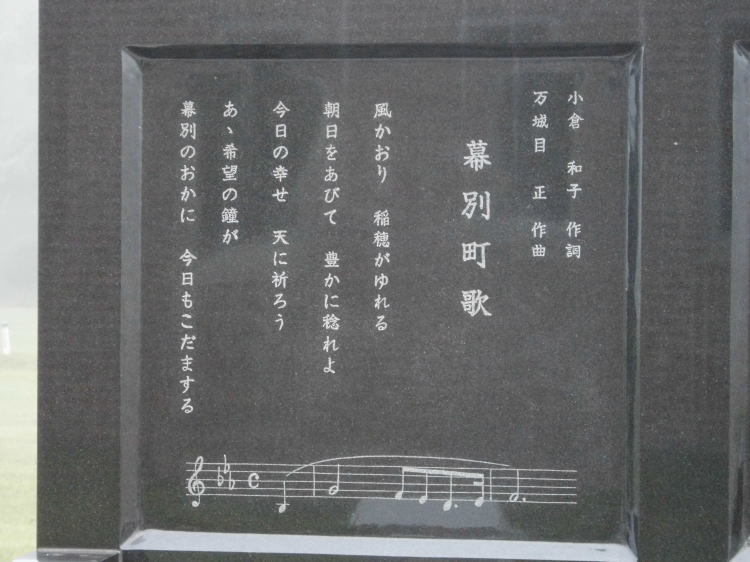 小倉 和子 作詞
万城目 正 作曲
幕別町歌
風かおり 稲穂がゆれる
朝日をあびて 豊かに稔れよ
今日の幸せ 天に祈ろう
あゝ希望の鐘が
幕別のおかに 今日もこだまする